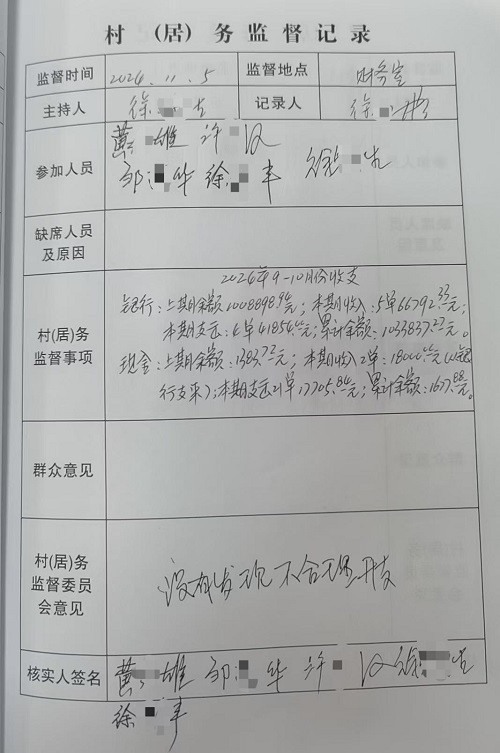 村（居）务监督记录
监督时间 2024.11.5 监督地点 财务室
主持人 徐 记录人 徐
雄 许 汉
参加人员 邹 华 徐 丰
缺席人员
及原因
2024年9-10月份收支
银行：上期余额1008898.94元；本期收入：5单66792.33元；
村(居)务
监督事项
本期支出：4单41854.00元；累计余额：1033837.27元。
现金：上期余额：1383.72元；本期收入2单：18000.00元(从银
行支来)；本期支出21单17705.84元；累计余额：1677.88元。
群众意见
村(居)务
监督委员
会意见
没有发现不合理开支
核实人签名 雄 邹 华 许 汉
徐 丰